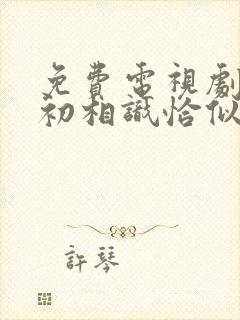 免費電視劇
初相識恰似
許琴